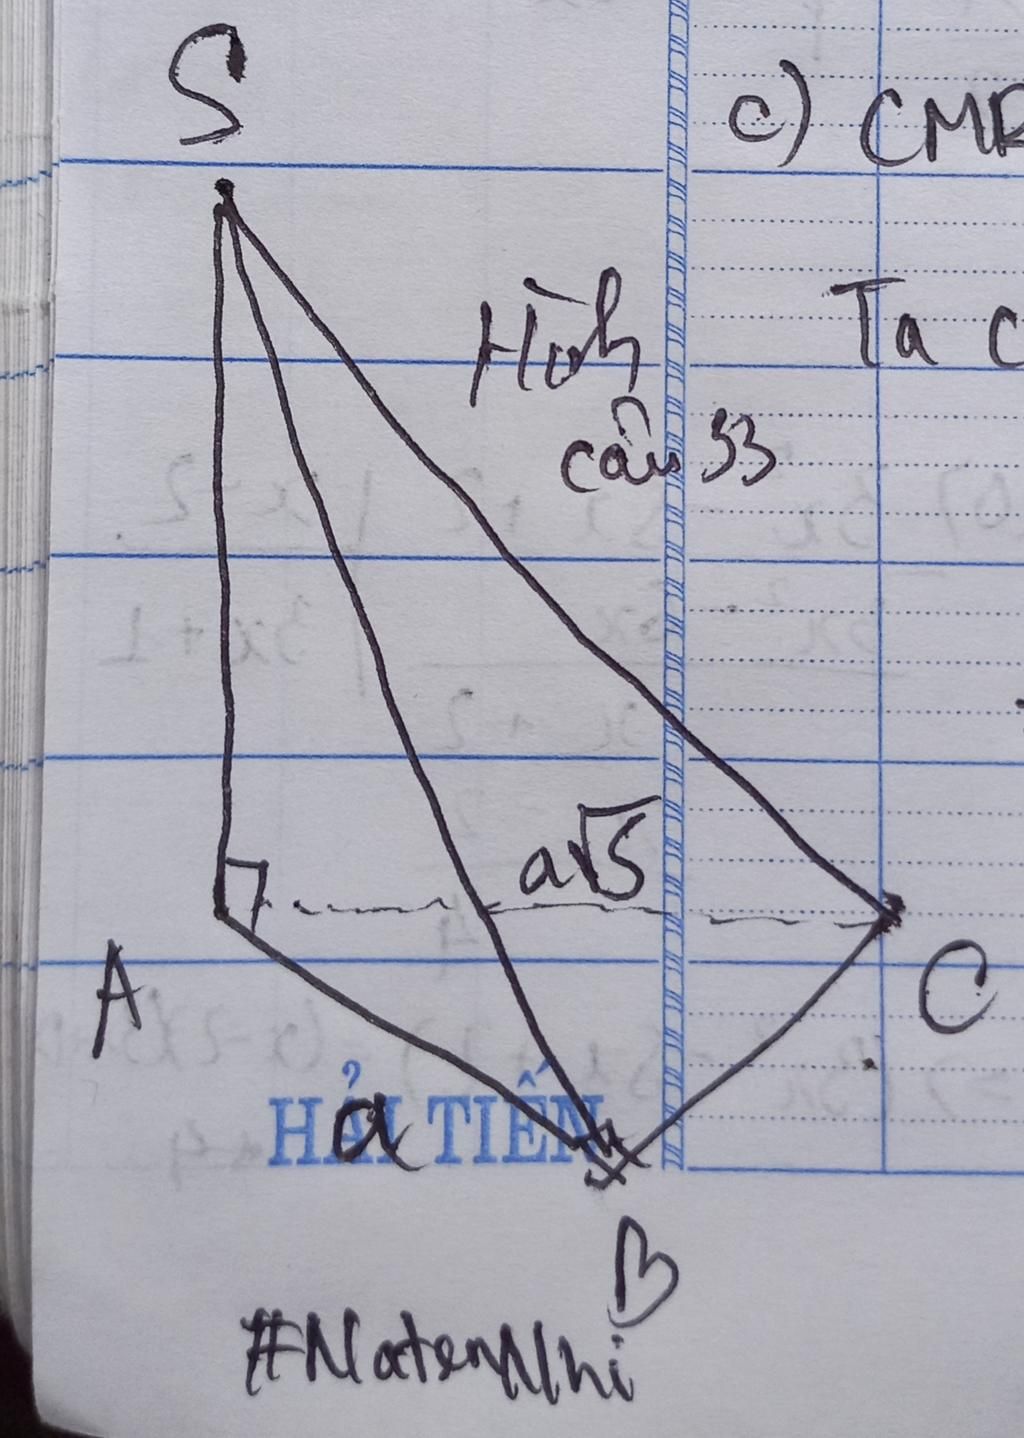 S
c) CMR
Hình
Ta c
câu 33
a√5
A
C
a
HẢI TIẾN
B
#NatenNhi